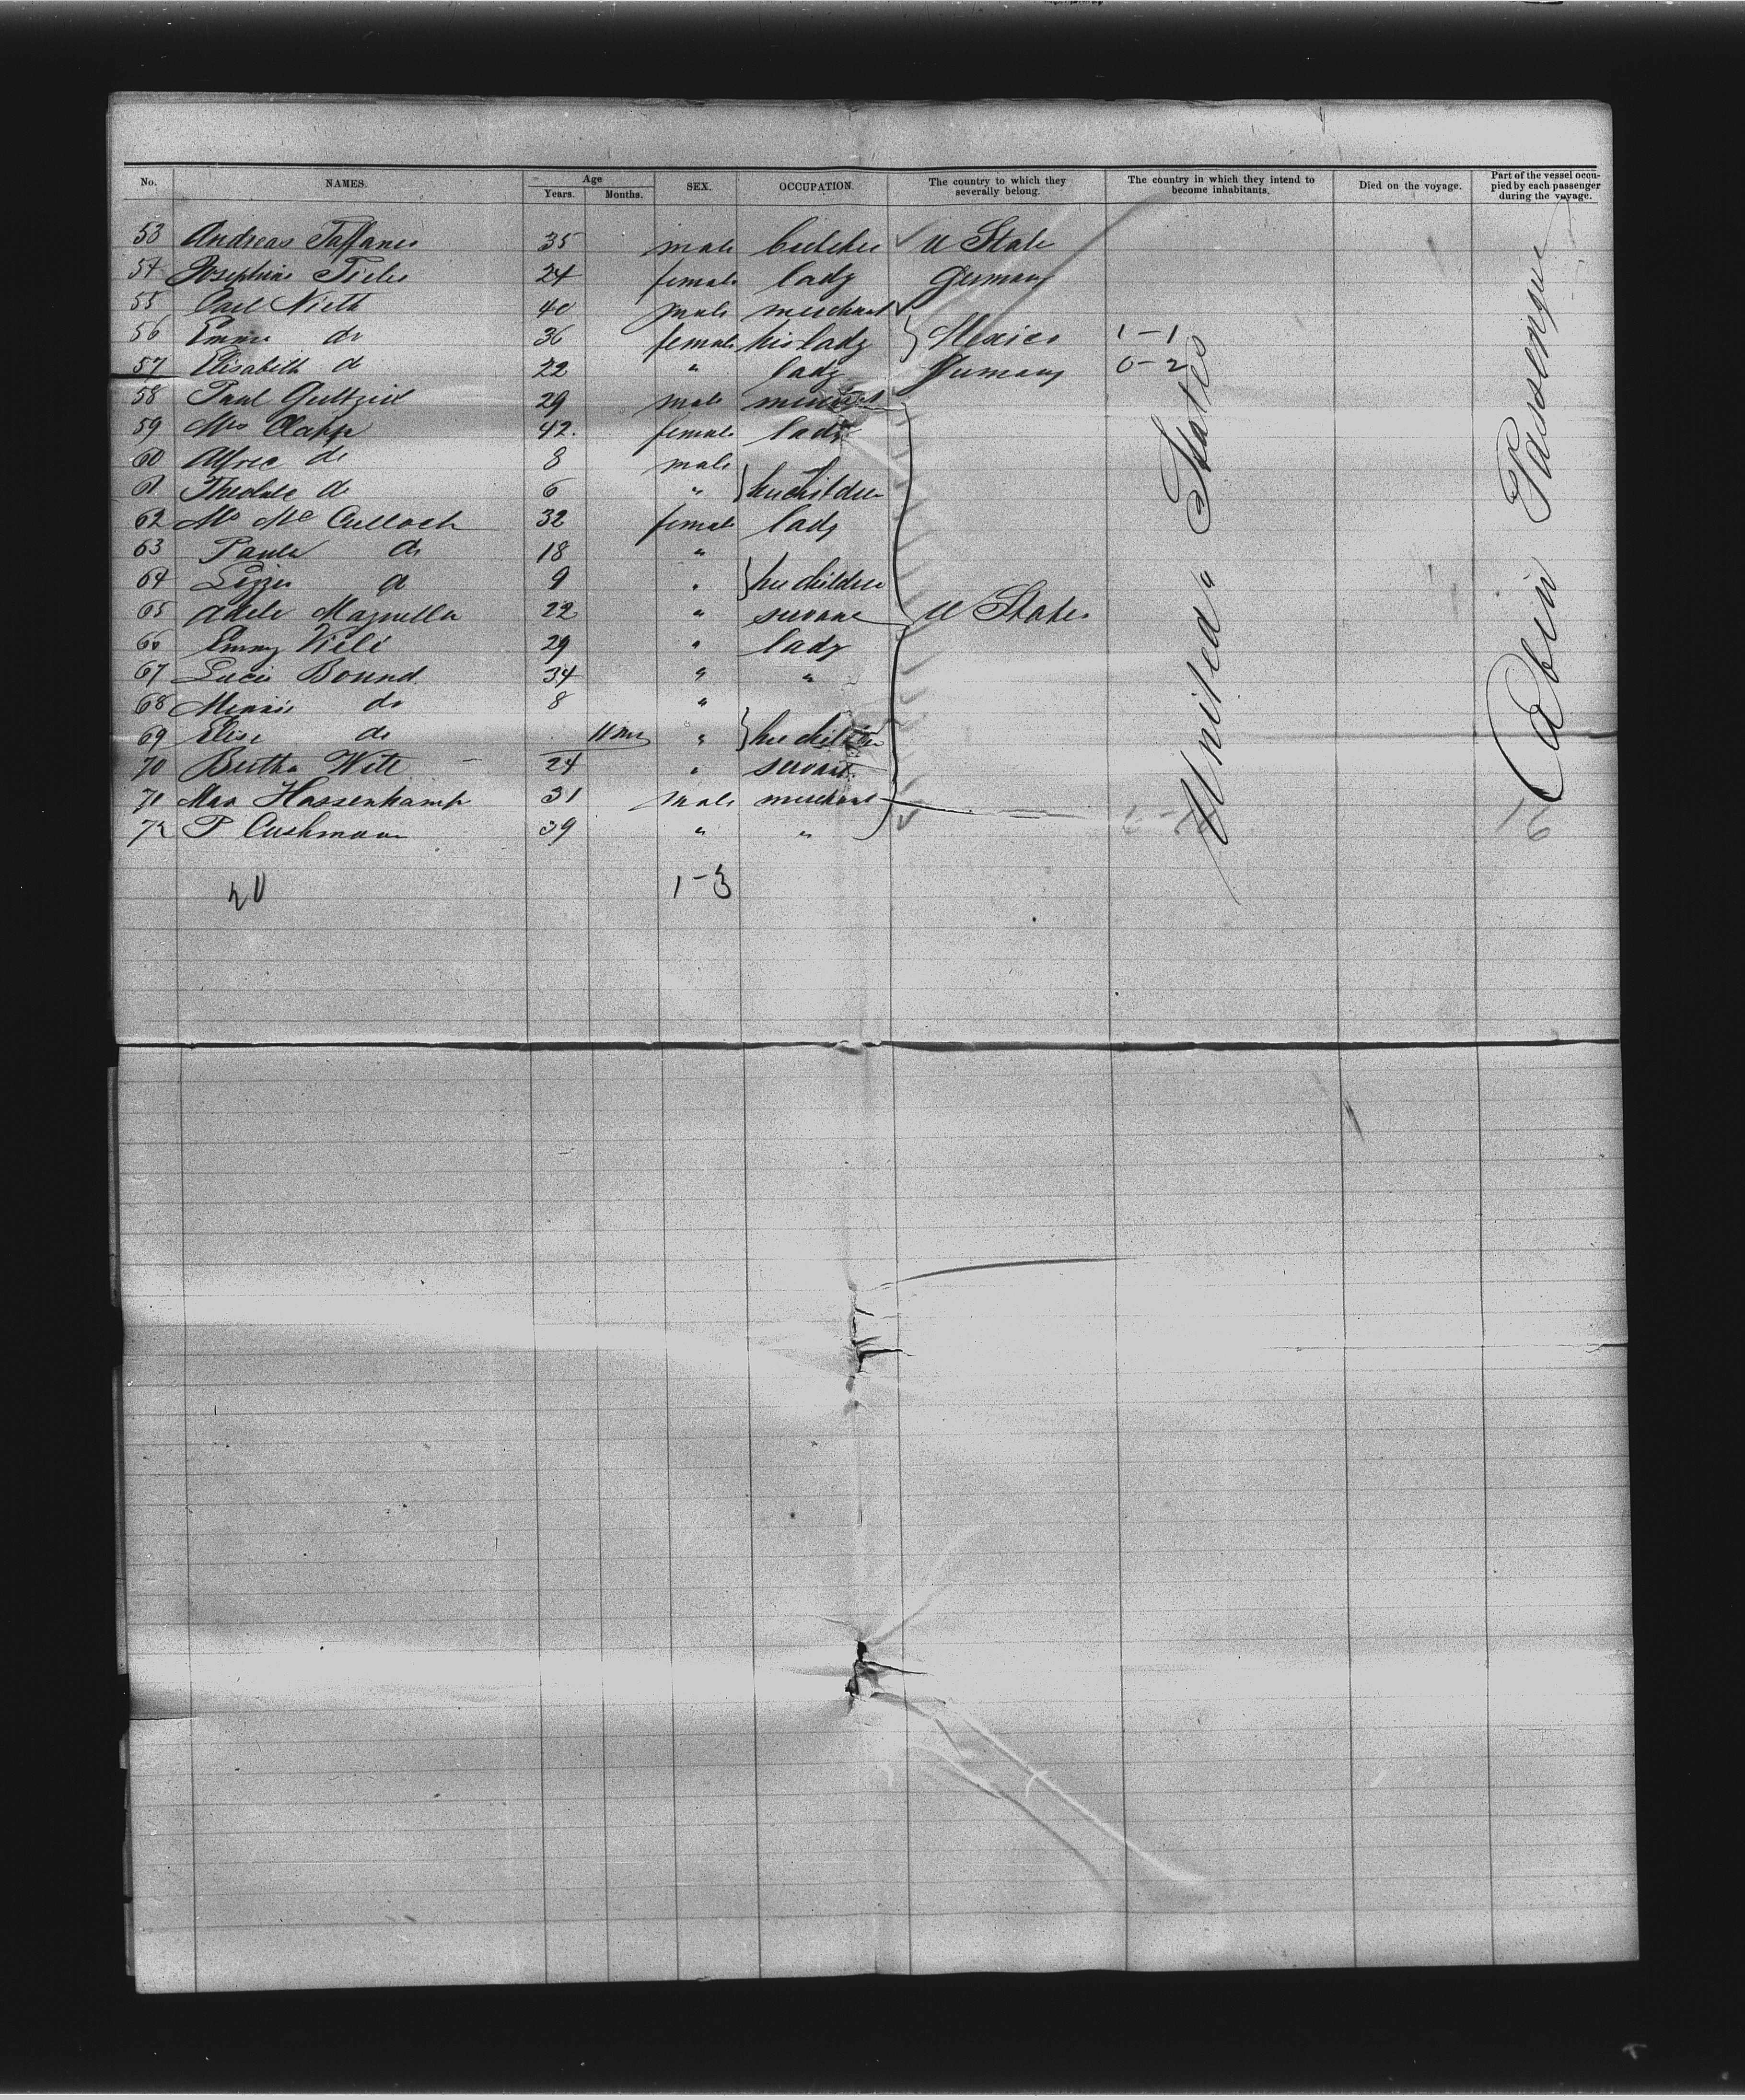 No. NAMES. Age Years. Months. SEX. OCCUPATION. The country to which they severally belong. The country in which they intend to become inhabitants. Died on the voyage. Part of the vessel occupied by each passenger during the voyage.
53 Andreas 35 male butcher U State
54 Josephine 24 female lady Germany
55 Carl Nieth 40 male merchant
56 Emma do 36 female his lady Mexico 1-1
57 Elisabeth do 22 " lady Germany 0-2
58 Paul 29 male
59 Mrs Clapp 42. female lady
60 Alfred do 8 male
61 do 6 " her children
62 Mrs Mc Culloch 32 female lady
63 Paula do 18 "
64 Lizzie do 9 " her children
65 Adele 22 " servant U States
66 Emmy 29 " lady
67 Lucie Bound 34 " "
68 Minnie do 8 "
69 Elise do 11 ms " her children
70 Bertha Witte 24 " servant
71 Max Hassenkamp 31 male merchant
72 P Cushman 39 " "
20 1-3
United States
Cabin Passengers